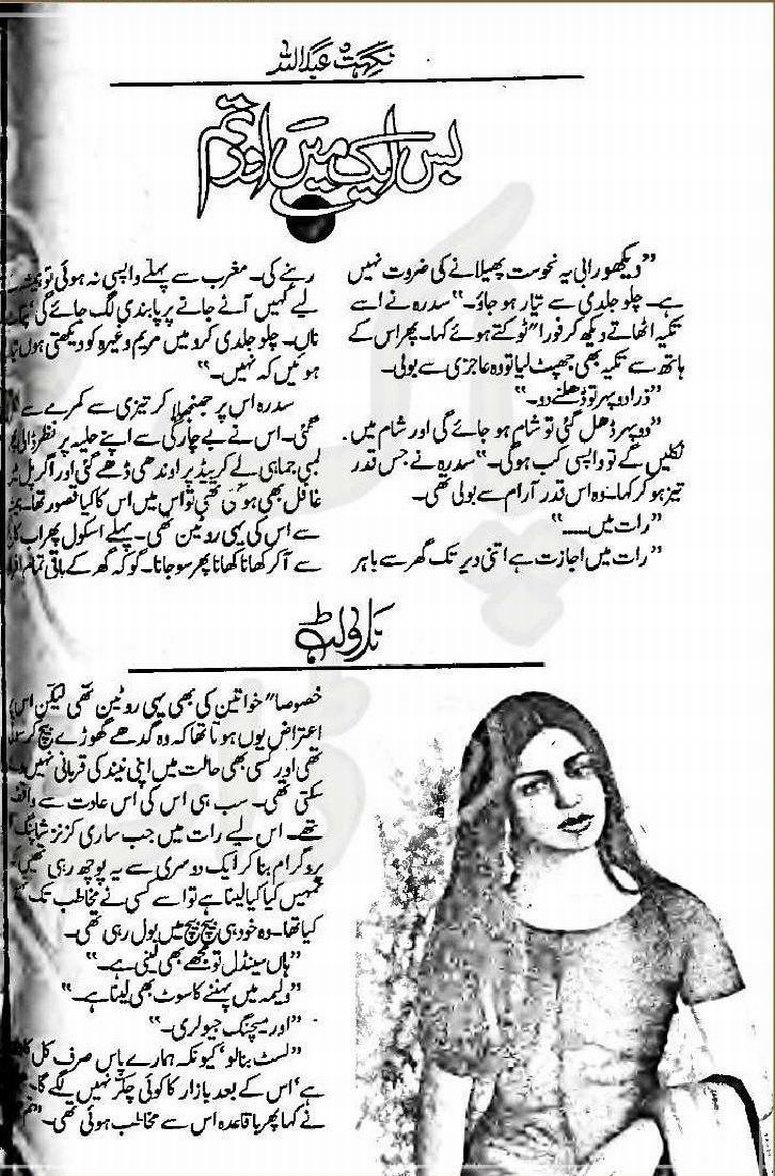 نگہت عبداللہ
بس ایک میں اور تم
”دیکھو رابی یہ نحوست پھیلانے کی ضرورت نہیں
ہے۔ چلو جلدی سے تیار ہو جاؤ۔“ سدرہ نے اسے
تکیہ اٹھاتے دیکھ کر فورا“ ٹوکتے ہوئے کہا۔ پھر اس کے
ہاتھ سے تکیہ بھی جھپٹ لیا تو وہ عاجزی سے بولی۔
”ذرا دوپہر تو ڈھلنے دو۔“
”دوپہر ڈھل گئی تو شام ہو جائے گی اور شام میں
نکلیں گے تو واپسی کب ہوگی۔“ سدرہ نے جس قدر
تیز ہو کر کہا۔ وہ اس قدر آرام سے بولی تھی۔
”رات میں......“
”رات میں اجازت ہے اتنی دیر تک گھر سے باہر
رہنے کی۔ مغرب سے پہلے واپسی نہ ہوئی تو ہمیشہ
لیے کہیں آنے جانے پر پابندی لگ جائے گی
ناں۔ چلو جلدی کرو میں مریم وغیرہ کو دیکھتی ہوں
ہوئیں کہ نہیں۔“
سدرہ اس پر جھنجلا کر تیزی سے کمرے سے
گئی۔ اس نے بے چارگی سے اپنے حلیہ پر نظر ڈالی
لمبی جماہی لے کر بیڈ پر اوندھی ڈھے گئی اور اگر پل
غافل بھی ہو گئی تھی تو اس میں اس کا کیا قصور تھا۔
سے اس کی یہی روٹین تھی۔ پہلے اسکول پھر اب
سے آ کر کھانا کھانا پھر سو جانا۔ گو کہ گھر کے باقی تمام
ناولٹ
خصوصا“ خواتین کی بھی یہی روٹین تھی لیکن اس
اعتراض یوں ہوتا تھا کہ وہ گدھے گھوڑے بیچ کر
تھی اور کسی بھی حالت میں اپنی نیند کی قربانی نہیں
سکتی تھی۔ سب ہی اس کی اس عادت سے واقف
تھے۔ اس لیے رات میں جب ساری کزنز شاپنگ
پروگرام بنا کر ایک دوسری سے یہ پوچھ رہی تھیں
تمہیں کیا کیا لینا ہے تو اسے کسی نے مخاطب تک
کیا تھا۔ وہ خود ہی بیچ بیچ میں بول رہی تھی۔
”ہاں سینڈل تو مجھے بھی لینی ہے۔“
”ولیمہ میں پہننے کا سوٹ بھی لینا ہے۔“
”اور میچنگ جیولری۔“
”لسٹ بنا لو‘ کیونکہ ہمارے پاس صرف کل کا
ہے‘ اس کے بعد بازار کا کوئی چکر نہیں لگے گا۔
نے کہا پھر باقاعدہ اس سے مخاطب ہوئی تھی۔